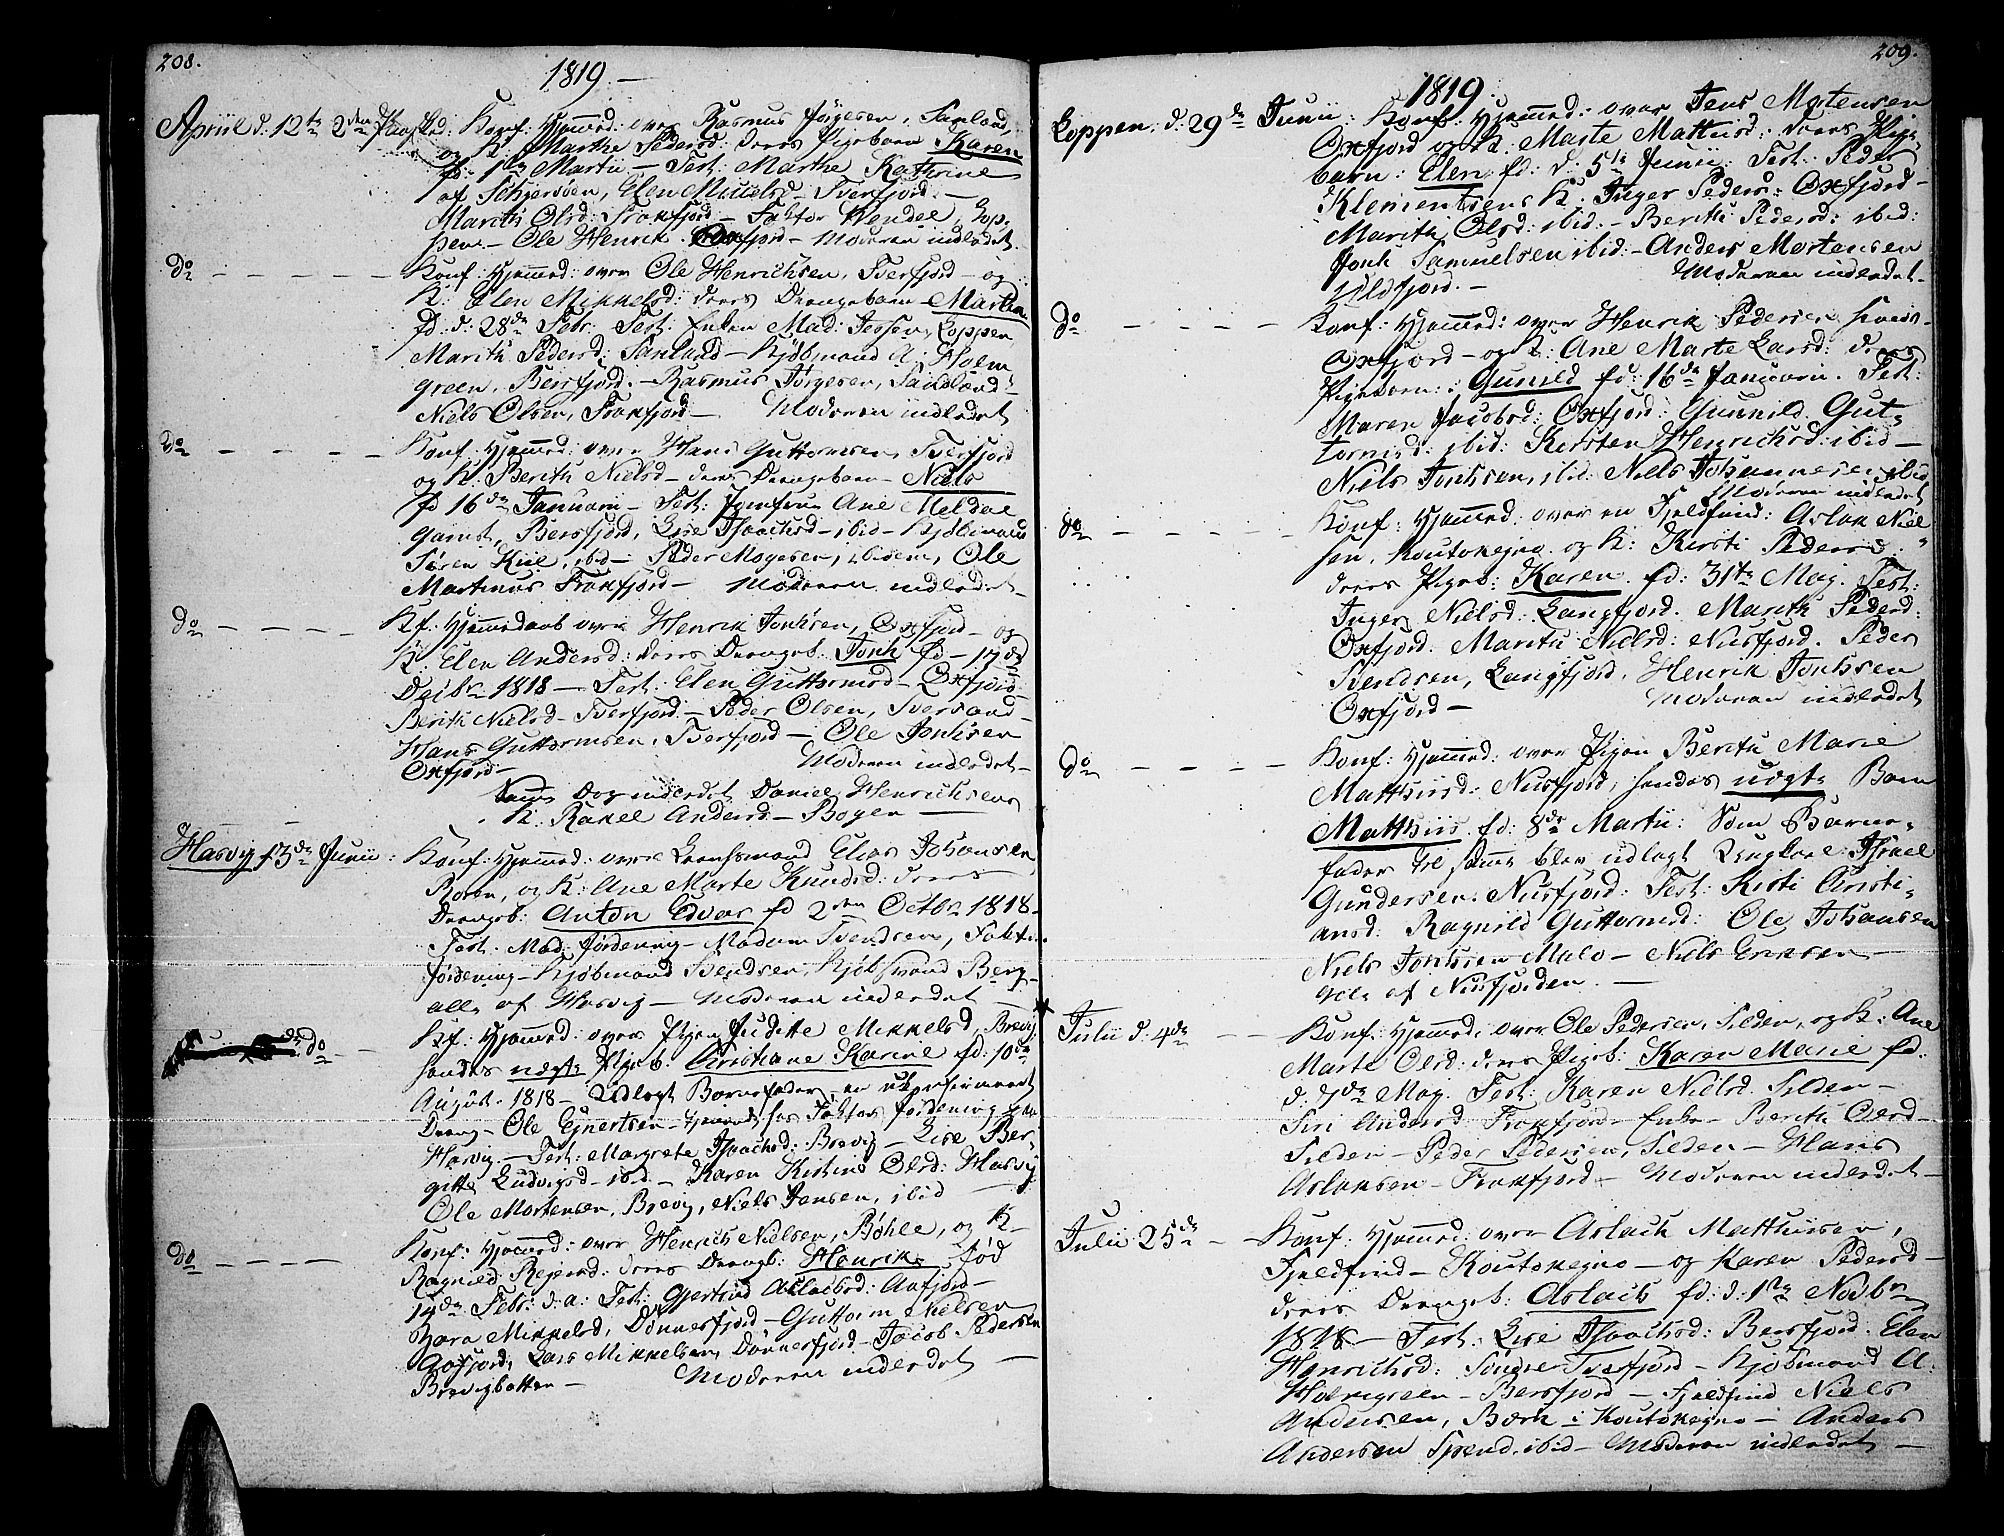 208.
1819.—
Apriil d. 12te 2den Paaskd: Konf: Hjemmed: over Rasmus Jørgesen, Sanland
og K. Marthe Pedersd: deres Pigebarn Karen
fd: 1te Martii — Test: Marthe Kathrine
af Schjersøen, Elen Nielsd — Tverfjord —
Marith Olsd: Frakfjord — Faktor Wendel, Lop-
pen — Ole Henrik. Oxfjord — Moderen indledet.
do — — — — — Konf: Hjemmed: over Ole Henrichsen, Tverfjord — og
K: Elen Mikkelsd: deres Drengebarn — Marthin
fd: d: 28de Febr. Test: Enken Mad: Jessen, Loppen
Marith Pedersd: Sanland — Kjøbmand A: Holm
green, Bersfjord. — Rasmus Jørgesen, Sandland —
Niels Olsen, Frakfjord — Moderen indledet
do — — — — — Konf: Hjemmed: over Hans Guttormsen, Tverfjord
og K. Berith Nielsd — deres Drengebarn — Niels
fd 16de Januarii — Test: Jomfrue Ane Meldal
Qamst, Bersfjord, Lise Isaachsd — ibid — Kjøbmand
Søren Kiil, ibid — Peder Mogesen, ibidem, Ole
Martinus Frakfjord — Moderen indledet —
do — — — — — Kf: Hjemmedaab over Henrik Jonsen, Oxfjord — og
K. Elen Andersd: deres Drengeb: Jonh fd — 17de
Decbr 1818 — Test: Elen Guttormsd — Oxfjord —
Berith Nielsd — Tverfjord — Peder Olsen, Tversand —
Hans Guttormsen, Tverfjord — Ole Jonsen
Oxfjord — Moderen indledet —
Dog indledet Daniel Henrichsens
K. Rakel Andersd — Bogen —
Hasvig 13de Junii: Konf: Hjemmed: over Leensmand Elias Johansen,
Børen, og K: Ane Marte Knudsd: deres
Drengeb: Anton Edvar fd 2den Octbr 1818 —
Test. Mad: Fordening — Madam Svendsen, Faktor
Fordening — Kjøbmand Svendsen, Kjøbmand Berg —
alle af Hasvig — Moderen indledet —
do — Kf: Hjemmed: over Pigen Judithe Mikkelsd, Brevig
hendes uægte Pigeb. Cristiane Karine fd: 10de
August. 1818 — Udlagt Barnefader — en ukonfirmeret
Dreng — Ole Ejnertsen — tjenende hos Faktor Fordening paa
Hasvig — Test: Margrete Isaachsd: Brevig — Lise Ber-
gitte Ludvigsd — ibid — Karen Kirstine Olsd: Hasvig
Ole Mortensen, Brevig, Niels Jensen, ibid —
do — — — — — Konf: Hjemmed: over Henrich Nielsen, Bøhle, og K —
Ragnild Rejersd: deres Drengb: Henrik. fød
14de Febr: d. a: Test: Gjertrud Aslachsd: Aafjord —
Zara Mikkelsd, Dønnesfjord — Guttorm Nielsen
Aafjord, Lars Mikkelsen, Dønnesfjord — Jacob Pedersen
Brevigbotten — Moderen indledet —
209.
1819.
Loppen, d: 29de Junii: Konf: Hjemmed: over Jens Mortensen
Oxfjord og K. Marte Mathiisd: deres Pige-
barn: Elen. fd: d: 5te Junii. Test: Peder
Klementsens K. Inger Pedersd: Oxfjord —
Marith Olsd: ibid. — Berith Pedersd: ibid:
Jonh Samuelsen ibid. — Anders Mortensen
Ulsfjord. — Moderen indledet —
do — — — — — Konf: Hjemmed: over Henrik Pedersen
Oxfjord — og K. Ane Marte Larsd: deres
Pigebarn: Gunild fd: 16de Januarii. Test:
Maren Jacobsd: Oxfjord: Gunnild Gut-
tormsd: ibid: Kirsten Henrichsd: ibid —
Niels Jonsen, ibid: Niels Johannesen ibid
Moderen indledet
do — — — — — Konf: Hjemmed: over en Fjeldfind: Aslak Niel-
sen, Koutokejno og K: Kirsti Pedersd:
deres Pigeb: Karen. fd: 31te Maj. Test:
Inger Nielsd: Langfjord. Marith Pedersd:
Oxfjord. Marith Nielsd: Nusfjord. Peder
Svendsen, Langfjord, Henrik Jonsen
Oxfjord — Moderen indledet
do — — — — — Konf: Hjemmed: over Pigen Berith Marie
Mathiisd: Nusfjord, hendes uægte Barn
Matthiis fd: 8de Martii: Som Barne-
fader til samme blev udlagt Ungkarl: Israel
Gundersen. Nusfjord: Test: Kisti Cristi-
ansd: Ragnild Guttormsd: Ole Johansen
Niels Jonsen Malo — Niels Eriksen —
alle af Nusfjorden. —
Julii d: 4de — — Konf: Hjemmed: over Ole Pedersen, Silden, og K: Ane
Marte Olsd: deres Pigeb: Karen Marie fd.
d. 7de Maj. Test: Karen Nielsd Silden —
Siri Andersd Frakfjord — Enke — Berith Olsd —
Silden — Peder Pedersen, Silden — Hans
Aslaksen — Frakfjord — Moderen indledet —
Julii 25de — Konf: Hjemmed: over Aslach Matthisen,
Fjeldfind — Koutokejno — og Karen Pedersd —
deres Drengeb: Aslach fd: d: 1te Novbr
1818 — Test: Lise Isaachsd: Bersfjord. Elen
Henrichsd: Søndre Tverfjord — Kjøbmand A:
Holmgreen — Bersfjord — Fjeldfind Niels
Andersen, Bærk i Koutokejno — Anders
Andersen Spend, ibid — Moderen indledet —